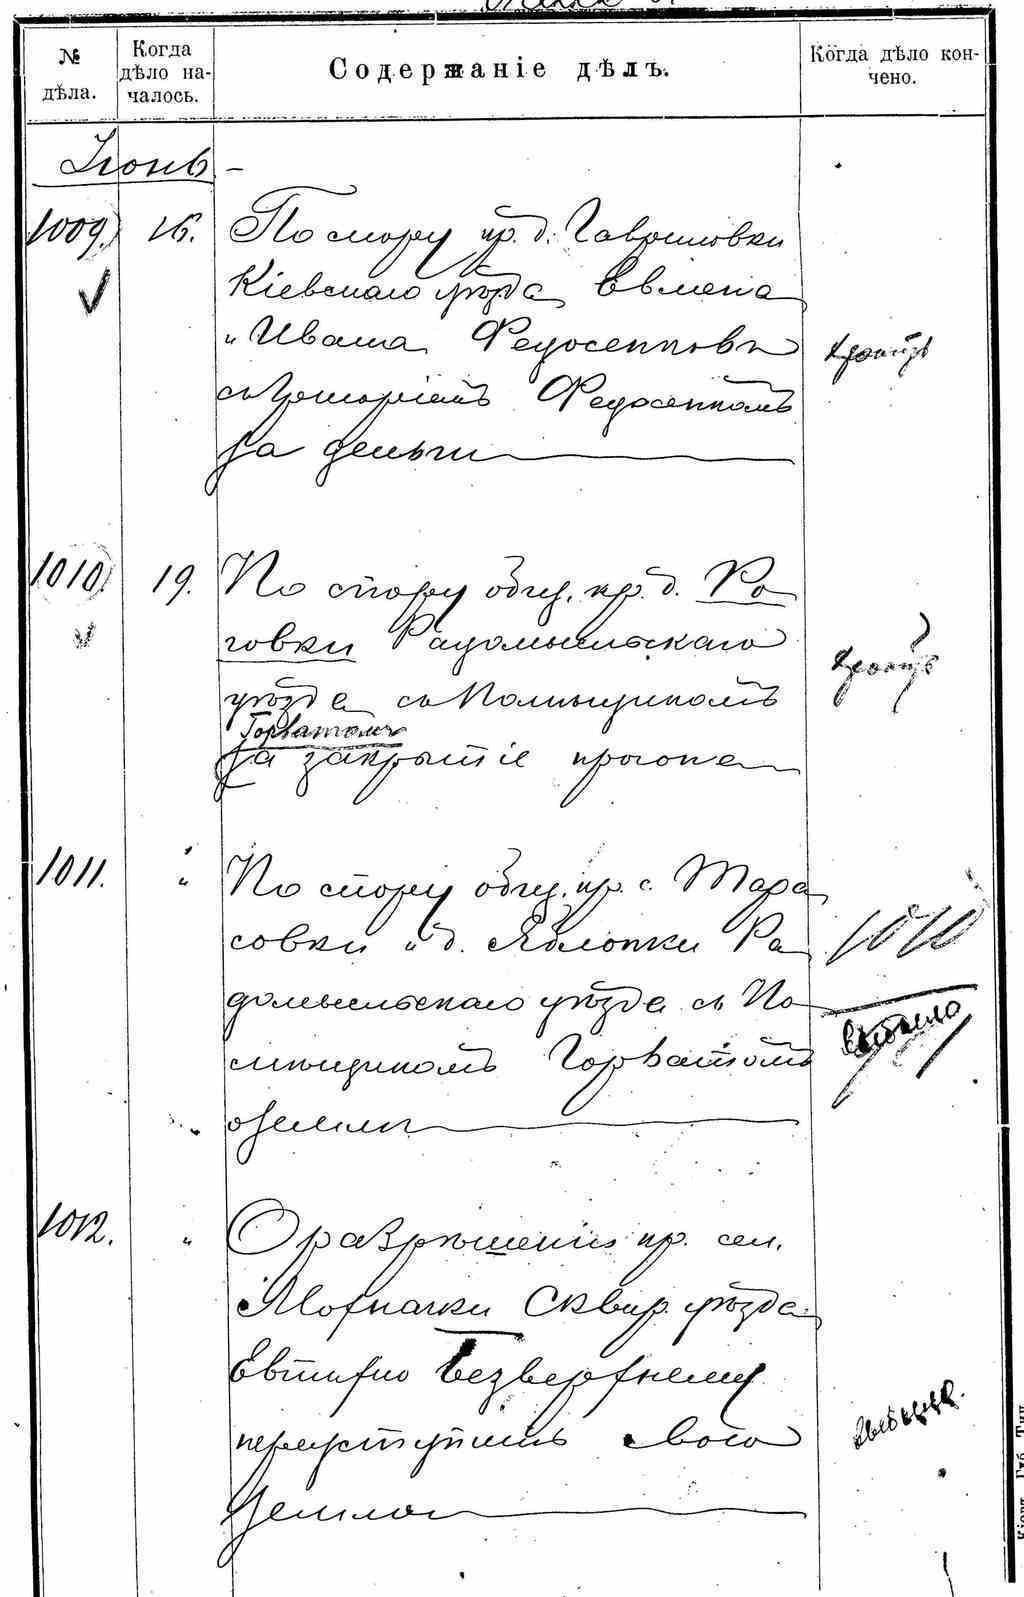 № дѣла.
Когда дѣло на-
чалось.
Содержаніе дѣлъ.
Когда дѣло кон-
чено.
Іюнь
1009. 16. По спору кр. д. Гавриловки
Кіевскаго уѣзда Евмена
и Ивана Федосенковъ
съ Григоріемъ Федосенкомъ
за деньги
1010. 19. По спору общ. кр. д. Ра
говки Радомысльскаго
уѣзда съ Помѣщикомъ
Горватомъ
за закрытіе прогона
1011. " По спору общ. кр. с. Тара
совки и д. Яблонки Ра
домысльскаго уѣзда съ По
мѣщикомъ Горватомъ
о землѣ
1010
выбыло
1012. " О разрѣшеніи кр. сел.
Мохначки Сквир. уѣзда
Евтифію Безверхнему
переуступить свою
землю